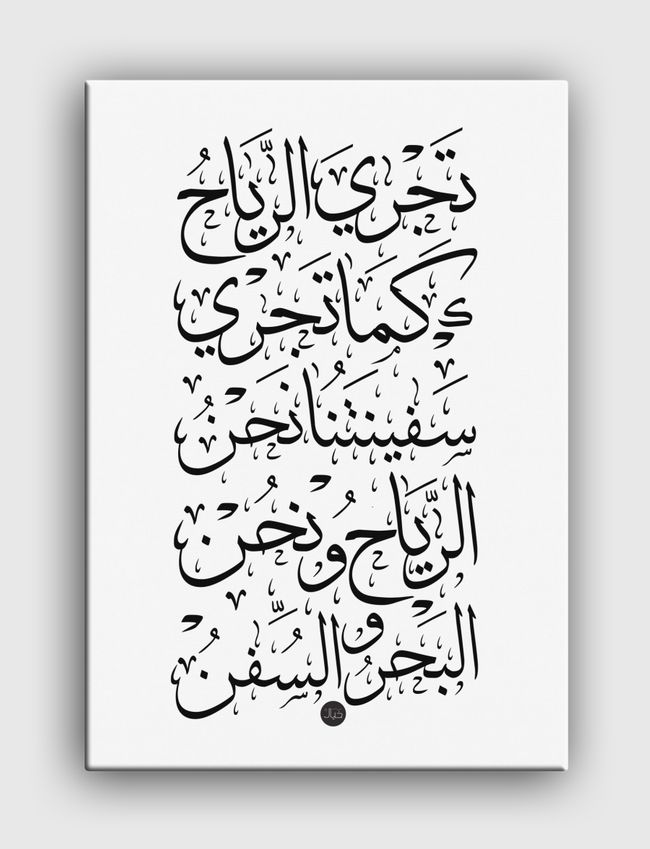 تَجْرِي الرِّيَاحُ
كَمَا تَجْرِي
سَفِينَتُنَا نَحْنُ
الرِّيَاحُ وَنَحْنُ
الْبَحْرُ وَالسُّفُنْ